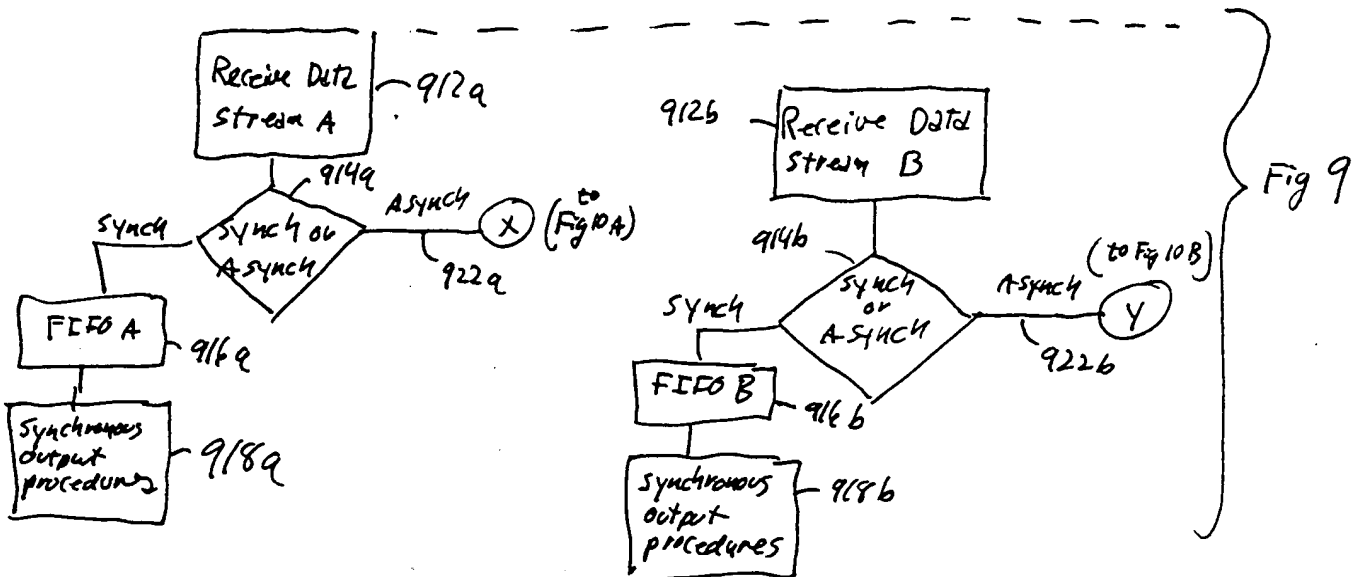 Receive Data
Stream A
912a
914a
Synch
Synch or
Asynch
Asynch
X
(to
Fig 10A)
922a
FIFO A
916a
Synchronous
output
procedures
918a
912b
Receive Data
Stream B
914b
Synch
Synch
or
Asynch
Asynch
(to Fig 10B)
Y
922b
FIFO B
916b
Synchronous
output
procedures
918b
Fig 9